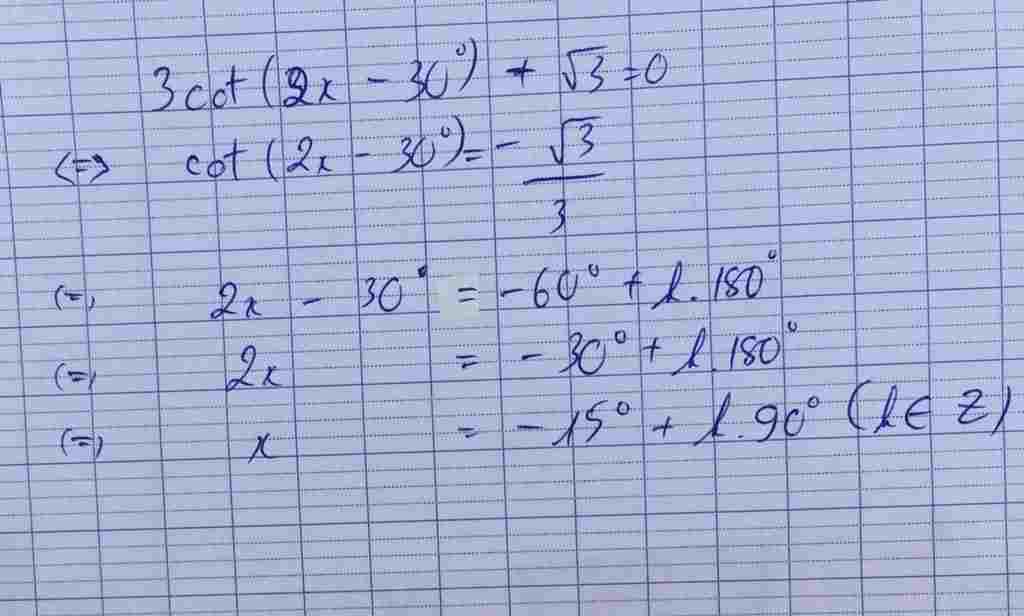 3cot(2x - 30°) + √3 = 0
<=> cot(2x - 30°) = - √3/3
<=> 2x - 30° = -60° + k.180°
<=> 2x = -30° + k.180°
<=> x = -15° + k.90° (k ∈ Z)